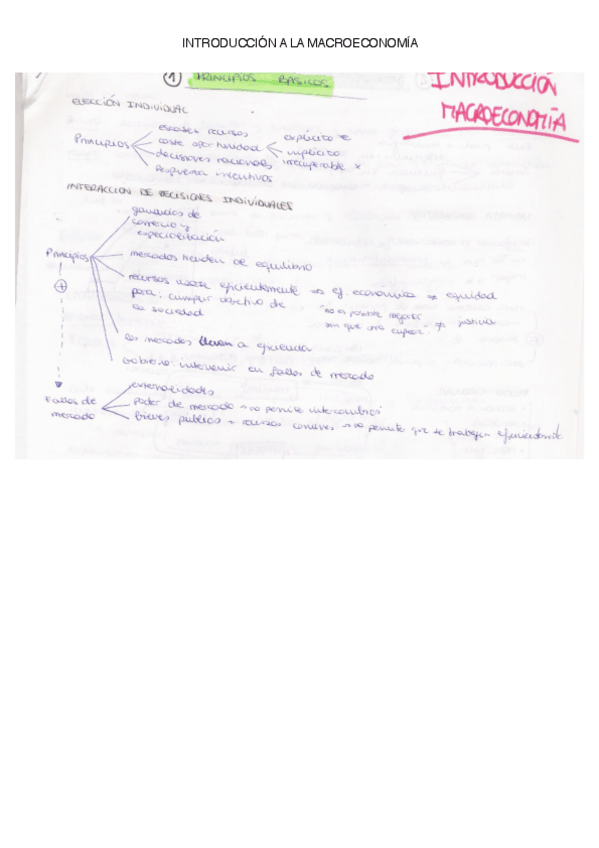 INTRODUCCIÓN A LA MACROECONOMÍA
INTRODUCCIÓN
MACROECONOMÍA
1 PRINCIPIOS BÁSICOS
ELECCIÓN INDIVIDUAL
Principios
escasez recursos
coste oportunidad
explícito
implícito
irrecuperable x
decisiones racionales
Respuesta incentivos
INTERACCION DE DECISIONES INDIVIDUALES
Principios
ganancias de
comercio y
especialización
mercados tienden de equilibrio
recursos usarse eficientemente ef. económica ≠ equidad
para: cumplir objetivo de
la sociedad
"no es posible mejorar
sin que otro empeore" ≠ justicia
+
los mercados llevan a eficiencia
Gobierno: intervenir en fallos de mercado
Fallos de
mercado
externalidades
poder de mercado no permite intercambios
bienes públicos recursos comunes no permite que se trabaje eficientemente